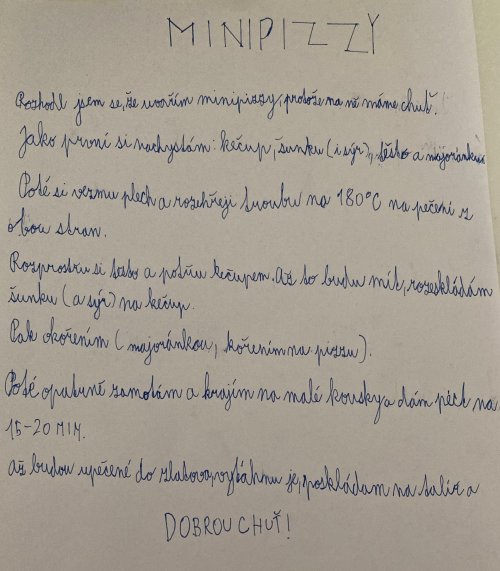 MINIPIZZY
Rozhodl jsem se, že uvařím minipizzy, protože na ně máme chuť.
Jako první si nachystám: kečup, šunku (i sýr), těsto a majoránku.
Poté si vezmu plech a rozehřeji troubu na 180°C na pečení z
obou stran.
Rozprostru si těsto a potřu kečupem. Až to budu mít, rozeskládám
šunku (a sýr) na kečup.
Pak okořením (majoránkou, kořením na pizzu).
Poté opatrně zamotám a krájím na malé kousky a dám péct na
15-20 MIN.
Až budou upečené do zlatova, vytáhnu je, poskládam na talíř a
DOBROU CHUŤ!